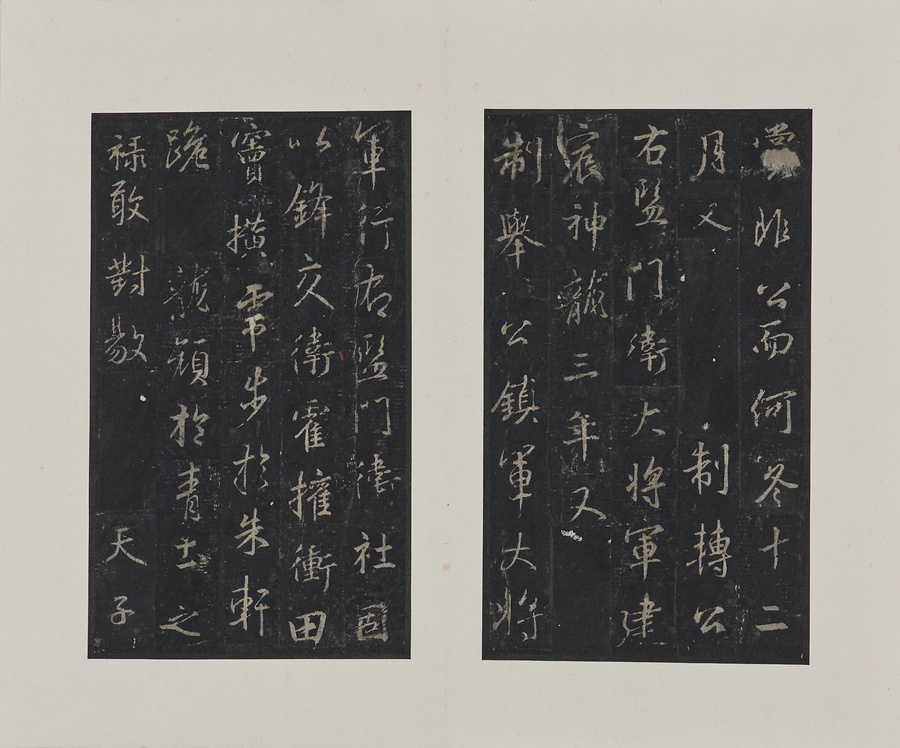 非公而何冬十二
月又制轉公
右監門衛大將軍建
宸神龍三年又
制舉公鎮軍大將
軍行右監門衛社固
以鋒交衛霍擁衝田
竇橫步於朱軒
跪龍額於青土之
祿敢對敭天子